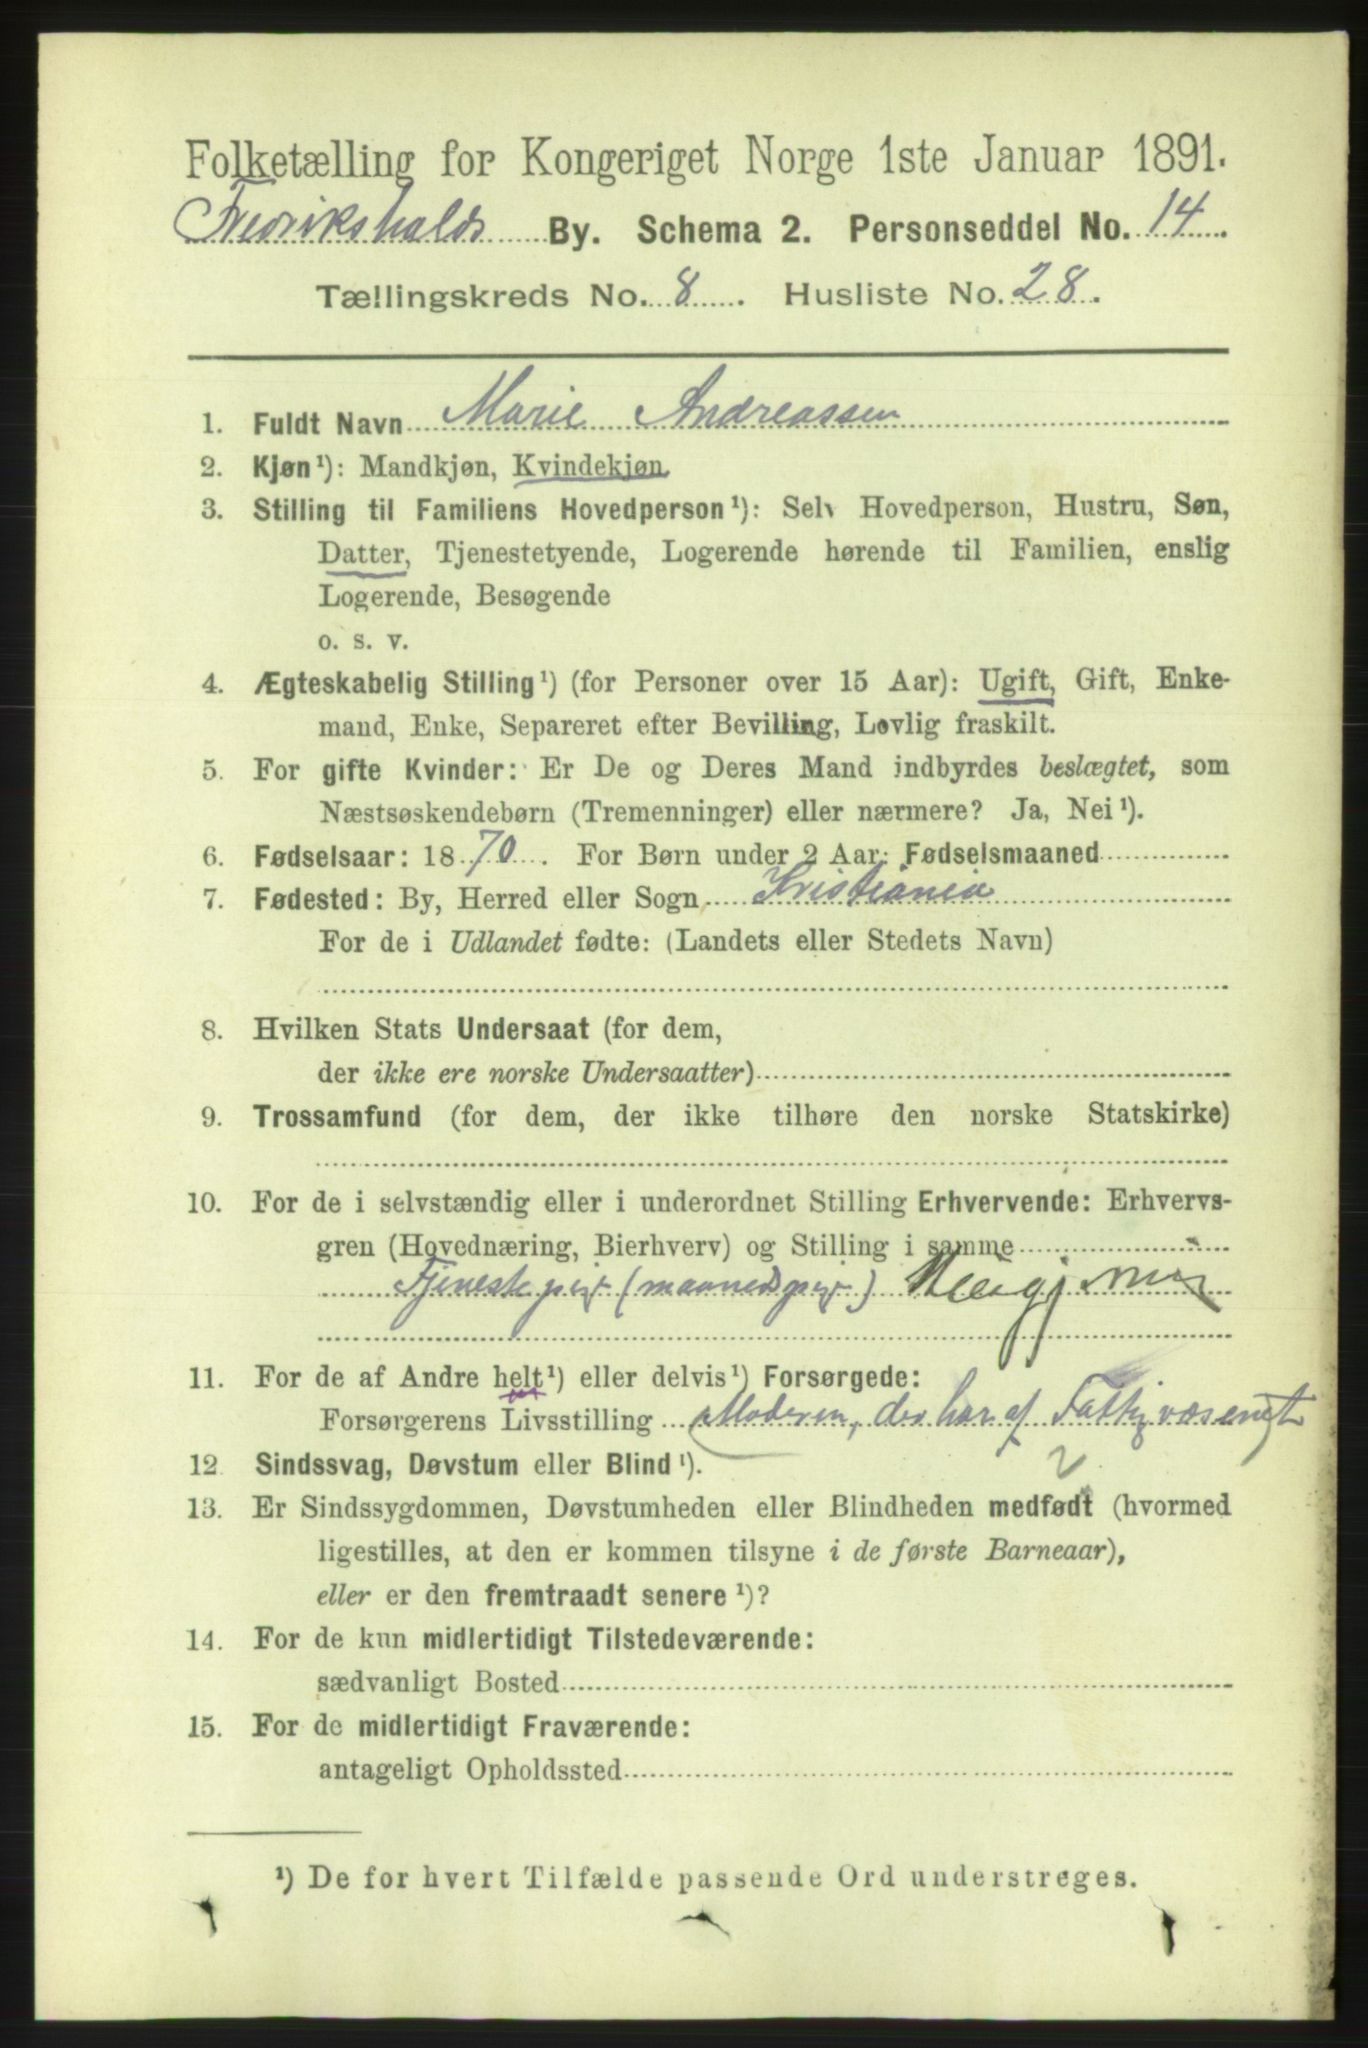 Folketælling for Kongeriget Norge 1ste Januar 1891.
Fredrikshalds By. Schema 2. Personseddel No. 14
Tællingskreds No. 8. Husliste No. 28.
1. Fuldt Navn Marie Andreassen
2. Kjøn¹): Mandkjøn, Kvindekjøn.
3. Stilling til Familiens Hovedperson¹): Selv Hovedperson, Hustru, Søn,
Datter, Tjenestetyende, Logerende hørende til Familien, enslig
Logerende, Besøgende
o. s. v.
4. Ægteskabelig Stilling¹) (for Personer over 15 Aar): Ugift, Gift, Enke-
mand, Enke, Separeret efter Bevilling, Lovlig fraskilt.
5. For gifte Kvinder: Er De og Deres Mand indbyrdes beslægtet, som
Næstsøskendebørn (Tremenninger) eller nærmere? Ja, Nei¹).
6. Fødselsaar: 1870. For Børn under 2 Aar: Fødselsmaaned
7. Fødested: By, Herred eller Sogn Kristiania
For de i Udlandet fødte: (Landets eller Stedets Navn)
8. Hvilken Stats Undersaat (for dem,
der ikke ere norske Undersaatter)
9. Trossamfund (for dem, der ikke tilhøre den norske Statskirke)
10. For de i selvstændig eller i underordnet Stilling Erhvervende: Erhvervs-
gren (Hovednæring, Bierhverv) og Stilling i samme
Tjenestepige (maanedspige)
11. For de af Andre helt¹) eller delvis¹) Forsørgede:
Forsørgerens Livsstilling Moderen, der har af Fattigvæsenet
12. Sindssvag, Døvstum eller Blind¹).
13. Er Sindssygdommen, Døvstumheden eller Blindheden medfødt (hvormed
ligestilles, at den er kommen tilsyne i de første Barneaar),
eller er den fremtraadt senere¹)?
14. For de kun midlertidigt Tilstedeværende:
sædvanligt Bosted
15. For de midlertidigt Fraværende:
antageligt Opholdssted
¹) De for hvert Tilfælde passende Ord understreges.